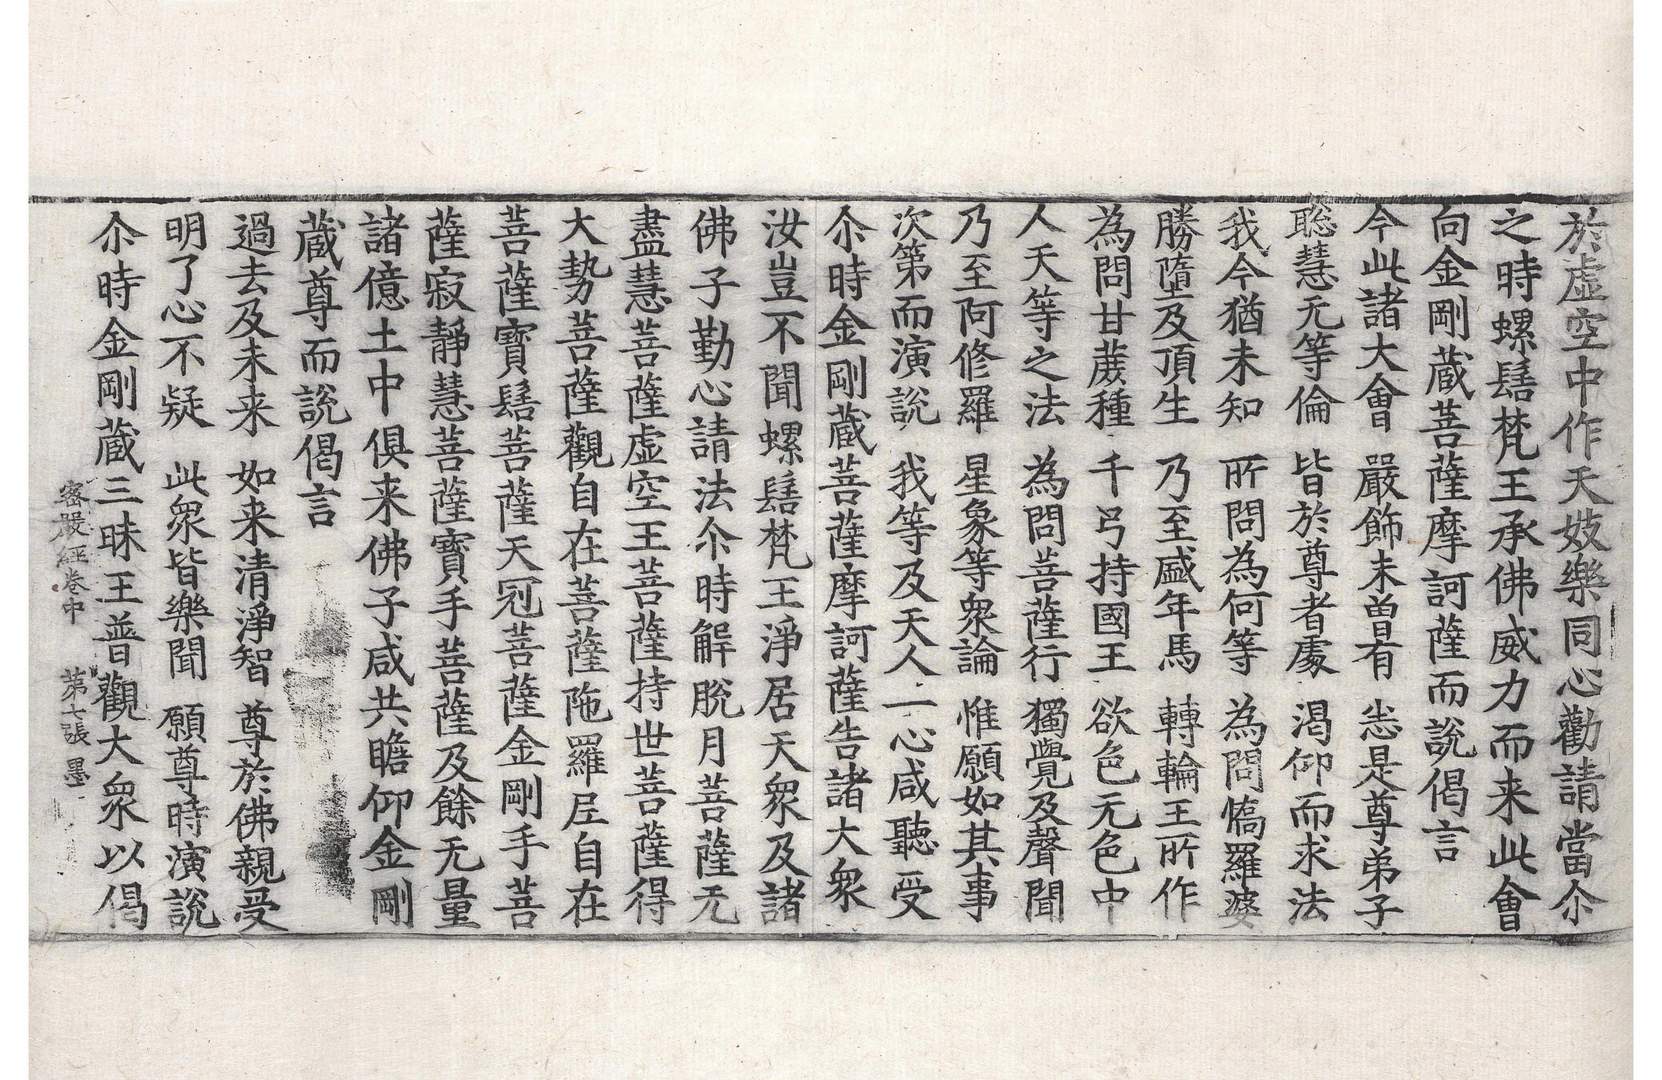 於虛空中作天妓樂同心勸請當尒
之時螺髻梵王承佛威力而来此會
向金剛蔵菩薩摩訶薩而說偈言
今此諸大會　嚴飾未曽有　恙是尊弟子
聡慧无等倫　皆於尊者處　渇仰而求法
我今猶未知　所問為何等　為問憍羅婆
勝墮及頂生　乃至㽀年馬　轉輪王所作
為問甘蔗種　千弓持國王　欲色无色中
人天等之法　為問菩薩行　獨覺及聲聞
乃至阿修羅　星象等衆論　惟願如其事
次第而演說　我等及天人　一心咸聽受
尒時金剛蔵菩薩摩訶薩告諸大衆
汝豈不聞螺髻梵王淨居天衆及諸
佛子勤心請法尒時解脫月菩薩无
盡慧菩薩虛空王菩薩持世菩薩得
大勢菩薩觀自在菩薩陁羅𡰱自在
菩薩寶髻菩薩天冠菩薩金剛手菩
薩寂靜慧菩薩寶手菩薩及餘无量
諸億土中俱来佛子咸共瞻仰金剛
蔵尊而說偈言
過去及未来　如来清淨智　尊於佛親受
明了心不疑　此衆皆樂聞　願尊時演說
密嚴經卷中　第七張　墨
尒時金剛蔵三昧王普觀大衆以偈